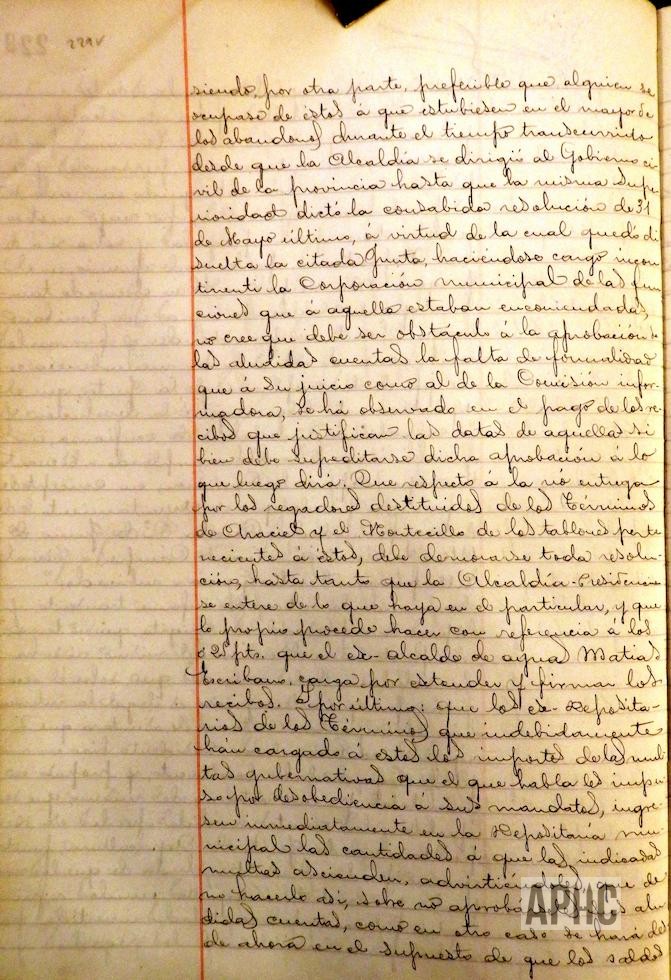 229v
siendo, por otra parte, preferible que alguien se
ocupase de éstos á que estubiesen en el mayor de
los abandonos durante el tiempo transcurrido
desde que la Alcaldía se dirigió al Gobierno ci
vil de la provincia hasta que la misma Supe
rioridad dictó la consabida resolución de 31
de Mayo último, á virtud de la cual quedó di
suelta la citada Junta, haciéndose cargo incon
tinenti la Corporación municipal de las fun
ciones que á aquella estaban encomendadas
no cree que debe ser obstáculo á la aprobación de
las aludidas cuentas la falta de formalidad
que á su juicio como al de la Comisión infor
madora, se há observado en el pago de los re
cibos que justifican las datas de aquellas si
bien debe supeditarse dicha aprobación á lo
que luego dirá. Que respecto á la nó entrega
por los regadores destituidos de los Términos
de Araciel y el Montecillo de los tablones perte
necientes á éstos, debe demorarse toda resolu-
ción, hasta tanto que la Alcaldía-Presidencia
se entere de lo que haya en el particular, y que
lo propio procede hacer con referencia á los
25 pts. que el ex-alcalde de aguas Matias
Escribano, carga por estender y firmar los
recibos. Y por último: que los ex-Deposita-
rios de los Términos que indebidamente
hán cargado á estos los importes de las mul
tas gubernativas que el que habla les impu
so por desobediencia á sus mandatos, ingre
sen inmediatamente en la Depositaría mu
nicipal las cantidades á que las indicadas
multas ascienden, advirtiéndoles que de
no hacerlo así, sobre no aprobar las alu
didas cuentas, como en otro caso se hará des
de ahora en el supuesto de que los saldos
APHC